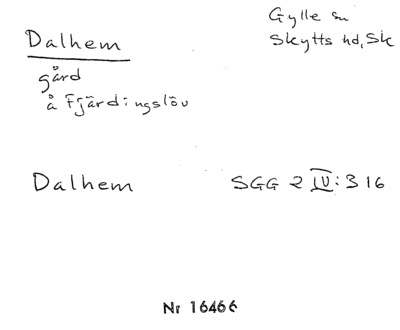 Dalhem
Gylle sn
Skytts hd, Sk
gård
å Fjärdingslöv
Dalhem
SGG 2 IV:316
Nr 16466